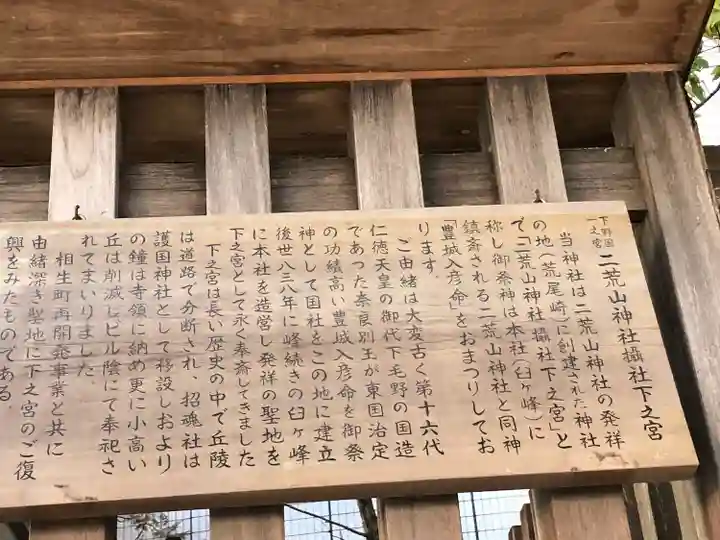 下野国
一之宮
二荒山神社摂社下之宮
当神社は二荒山神社の発祥
の地(荒尾崎)に創建された神社
で「二荒山神社 摂社下之宮」と
称し御祭神は本社(臼ヶ峰)に
鎮斎される二荒山神社と同神
「豊城入彦命」をおまつりしてお
ります。
ご由緒は大変古く第十六代
仁徳天皇の御代下毛野の国造
であった奈良別王が東国治定
の功績高い豊城入彦命を御祭
神として国社をこの地に建立
後世八三八年に峰続きの臼ヶ峰
に本社を造営し発祥の聖地を
下之宮として永く奉斎してきました
下之宮は長い歴史の中で丘陵
は道路で分断され、招魂社は
護国神社として移設しおより
の鐘は寺領に納め更に小高い
丘は削減しビル陰にて奉祀さ
れてまいりました。
相生町再開発事業と共に
由緒深き聖地に下之宮のご復
興をみたものである。